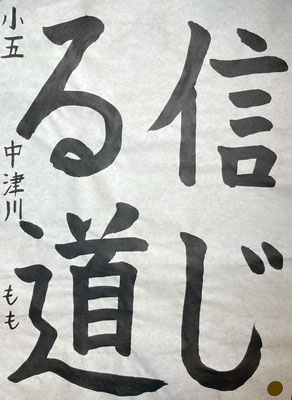 信じ
る道
小五 中津川 もも